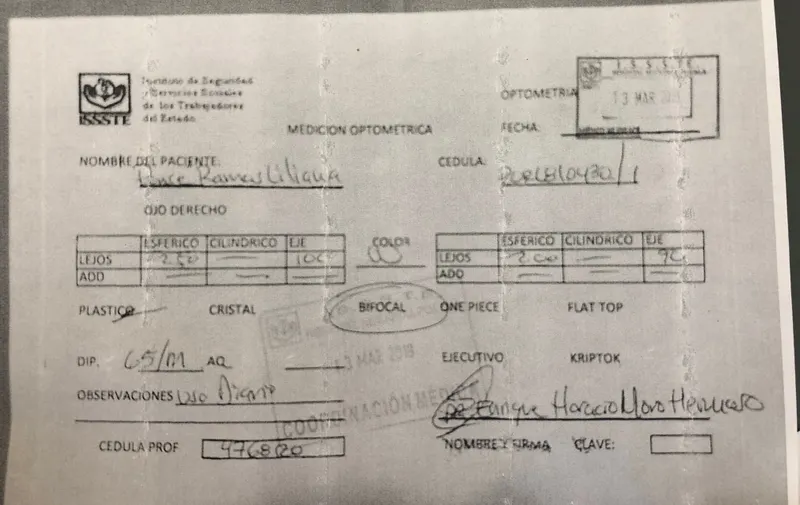 Instituto de Seguridad
y Servicios Sociales
de los Trabajadores
del Estado
ISSSTE
I.S.S.S.T.E.
OPTOMETRIA
13 MAR
MEDICION OPTOMETRICA
FECHA:
NOMBRE DEL PACIENTE: Ponce Ramos Liliana
CEDULA:
OJO DERECHO
ESFERICO CILINDRICO EJE
LEJOS 2.50 —
ADD — — —
COLOR
ESFERICO CILINDRICO EJE
LEJOS 2.00 — 90
ADD — —
PLASTICO CRISTAL BIFOCAL ONE PIECE FLAT TOP
DIP. 65/M AQ
13 MAR 2018
EJECUTIVO KRIPTOK
OBSERVACIONES Uso Diario
COORDINACIÓN
Enrique Horacio Moro Hermoso
CEDULA PROF 4768120
NOMBRE Y FIRMA CLAVE: